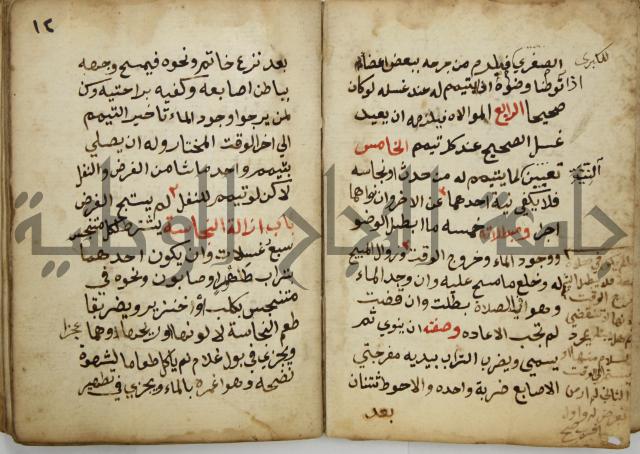 للكبرى
الصغرى فيلزم من جرحه ببعض اعضاء
اذا توضا وضوءه ان يتيمم له عند غسله لوكان
صحيحا الرابع الموالاه فيلزمه ان يعيد
غسل الصحيح عند كل تيمم الخامس
تعيين كما يتيمم له من حدث او نجاسه
فلا يكفي نية احدهما عن الاخر وان نواهما
اجزا ومبطلاته خمسه ما ابطل الوضو
ووجود الماء وخروج الوقت وزوال المبيح
له وخلع ما مسح عليه وان وجد الماء
وهو في الصلاة بطلت وان قضت
لم تجب الاعاده وصفته ان ينوي ثم
يسمي ويضرب التراب بيديه مفرجتي
الاصابع ضربة واحده والاحوط ثنتان
بعد
١٢
بعد نزع خاتم ونحوه فيمسح وجهه
بباطن اصابعه وكفيه براحتيه وسن
لمن يرجوا وجود الماء تاخير التيمم
الي اخر الوقت المختار وله ان يصلي
بتيمم واحد ما شا من الفرض والنفل
لاكن لو تيمم للنفل لم يستبح الفرض
باب ازالة النجاسة يشترط لكل متنجس
سبع غسلات وان يكون احدها
بتراب طاهر او صابون ونحوه في
متنجس بكلب او خنزير ويضر بقا
طعم النجاسة لا لونها او ريحها او هما عجزا
ويجزي في بول غلام لم ياكل طعاما لشهوة
نضحه وهو غمره بالماء ويجزي في تطهير
جامعة النجاح الوطنية